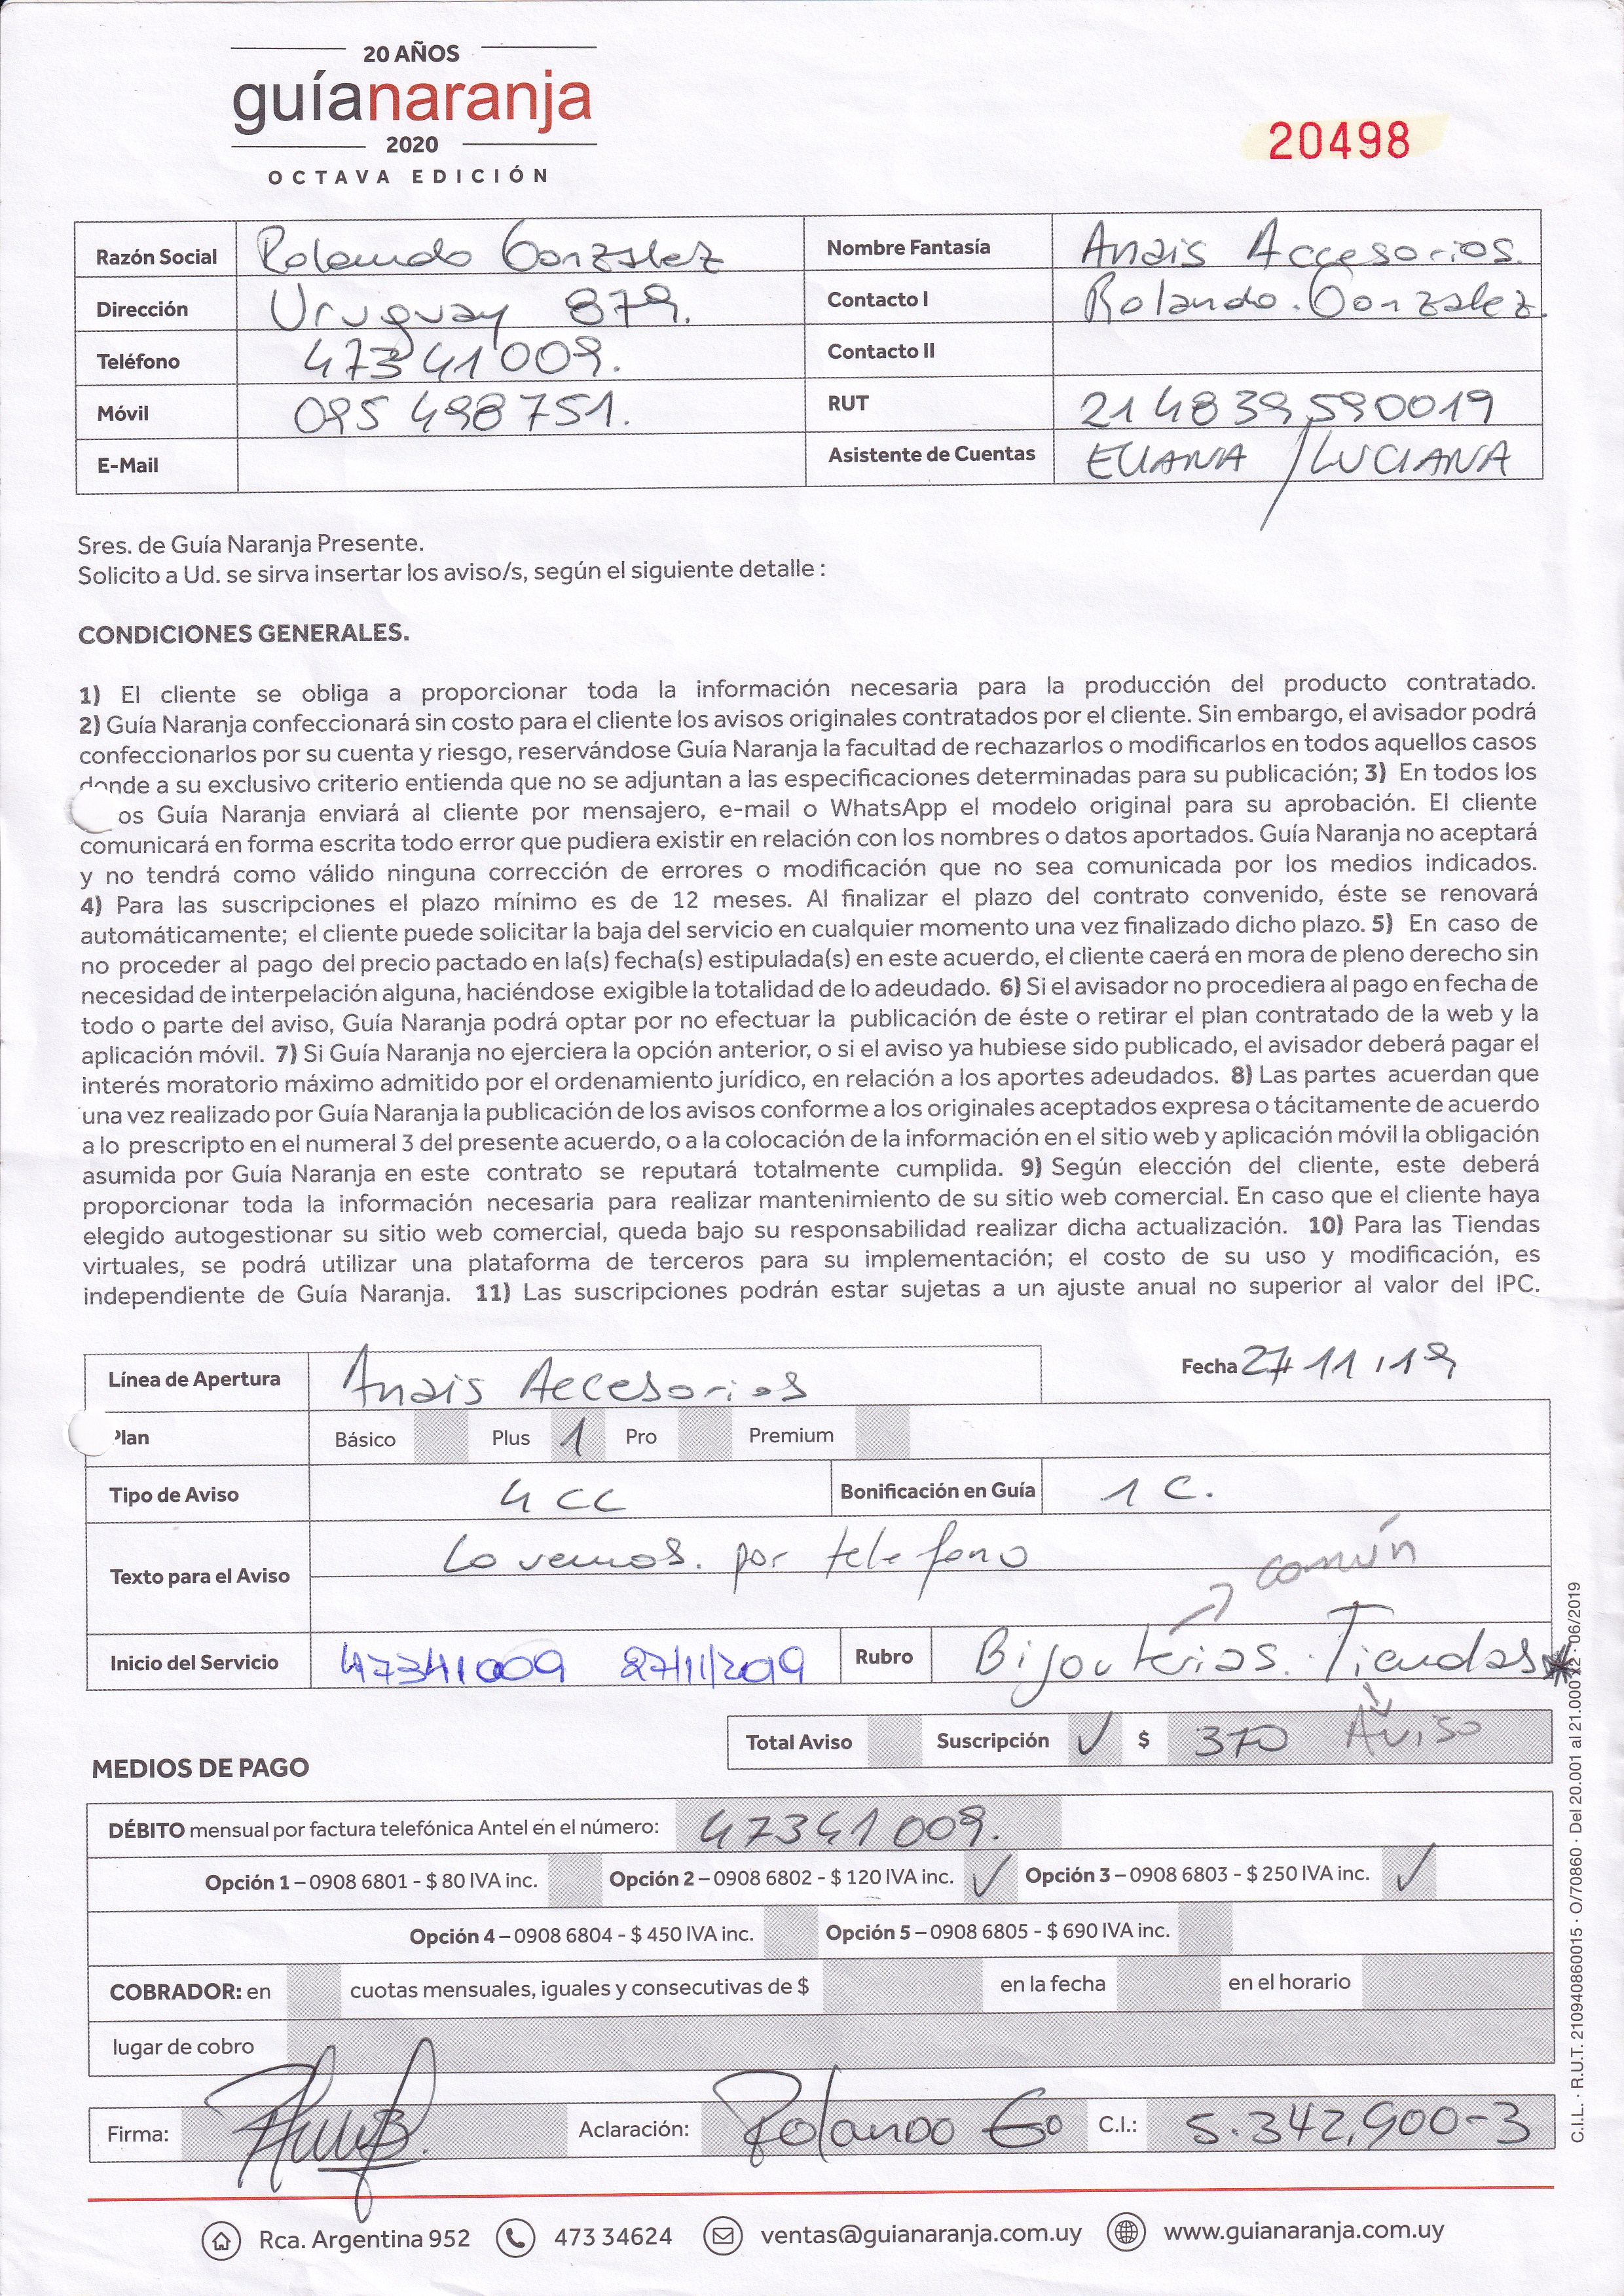 20 AÑOS
guíanaranja
2020
OCTAVA EDICIÓN
20498
Razón Social Rolando Gonzalez Nombre Fantasía Anais Accesorios.
Dirección Uruguay 879. Contacto I Rolando. Gonzalez.
Teléfono 47341009. Contacto II
Móvil 095 498751. RUT 214839590019
E-Mail Asistente de Cuentas ELIANA / LUCIANA
Sres. de Guía Naranja Presente.
Solicito a Ud. se sirva insertar los aviso/s, según el siguiente detalle :
CONDICIONES GENERALES.
1) El cliente se obliga a proporcionar toda la información necesaria para la producción del producto contratado.
2) Guía Naranja confeccionará sin costo para el cliente los avisos originales contratados por el cliente. Sin embargo, el avisador podrá
confeccionarlos por su cuenta y riesgo, reservándose Guía Naranja la facultad de rechazarlos o modificarlos en todos aquellos casos
donde a su exclusivo criterio entienda que no se adjuntan a las especificaciones determinadas para su publicación; 3) En todos los
os Guía Naranja enviará al cliente por mensajero, e-mail o WhatsApp el modelo original para su aprobación. El cliente
comunicará en forma escrita todo error que pudiera existir en relación con los nombres o datos aportados. Guía Naranja no aceptará
y no tendrá como válido ninguna corrección de errores o modificación que no sea comunicada por los medios indicados.
4) Para las suscripciones el plazo mínimo es de 12 meses. Al finalizar el plazo del contrato convenido, éste se renovará
automáticamente; el cliente puede solicitar la baja del servicio en cualquier momento una vez finalizado dicho plazo. 5) En caso de
no proceder al pago del precio pactado en la(s) fecha(s) estipulada(s) en este acuerdo, el cliente caerá en mora de pleno derecho sin
necesidad de interpelación alguna, haciéndose exigible la totalidad de lo adeudado. 6) Si el avisador no procediera al pago en fecha de
todo o parte del aviso, Guía Naranja podrá optar por no efectuar la publicación de éste o retirar el plan contratado de la web y la
aplicación móvil. 7) Si Guía Naranja no ejerciera la opción anterior, o si el aviso ya hubiese sido publicado, el avisador deberá pagar el
interés moratorio máximo admitido por el ordenamiento jurídico, en relación a los aportes adeudados. 8) Las partes acuerdan que
una vez realizado por Guía Naranja la publicación de los avisos conforme a los originales aceptados expresa o tácitamente de acuerdo
a lo prescripto en el numeral 3 del presente acuerdo, o a la colocación de la información en el sitio web y aplicación móvil la obligación
asumida por Guía Naranja en este contrato se reputará totalmente cumplida. 9) Según elección del cliente, este deberá
proporcionar toda la información necesaria para realizar mantenimiento de su sitio web comercial. En caso que el cliente haya
elegido autogestionar su sitio web comercial, queda bajo su responsabilidad realizar dicha actualización. 10) Para las Tiendas
virtuales, se podrá utilizar una plataforma de terceros para su implementación; el costo de su uso y modificación, es
independiente de Guía Naranja. 11) Las suscripciones podrán estar sujetas a un ajuste anual no superior al valor del IPC.
Línea de Apertura Anais Accesorios Fecha 27/11/19
Plan Básico Plus 1 Pro Premium
Tipo de Aviso 4 CC Bonificación en Guía 1 C.
Texto para el Aviso Lo vemos. por telefono
común
Inicio del Servicio 47341009 27/11/2019 Rubro Bijouterias. Tiendas*
Total Aviso Suscripción ✓ $ 370 Aviso
MEDIOS DE PAGO
DÉBITO mensual por factura telefónica Antel en el número: 47341009.
Opción 1 – 0908 6801 - $ 80 IVA inc. Opción 2 – 0908 6802 - $ 120 IVA inc. ✓ Opción 3 – 0908 6803 - $ 250 IVA inc. ✓
Opción 4 – 0908 6804 - $ 450 IVA inc. Opción 5 – 0908 6805 - $ 690 IVA inc.
COBRADOR: en cuotas mensuales, iguales y consecutivas de $ en la fecha en el horario
lugar de cobro
Firma: Aclaración: Rolando Go C.I.: 5.342,900-3
Rca. Argentina 952 473 34624 ventas@guianaranja.com.uy www.guianaranja.com.uy
C.I.L. · R.U.T. 210940860015 · O/70860 · Del 20.001 al 21.000 x2 · 06/2019